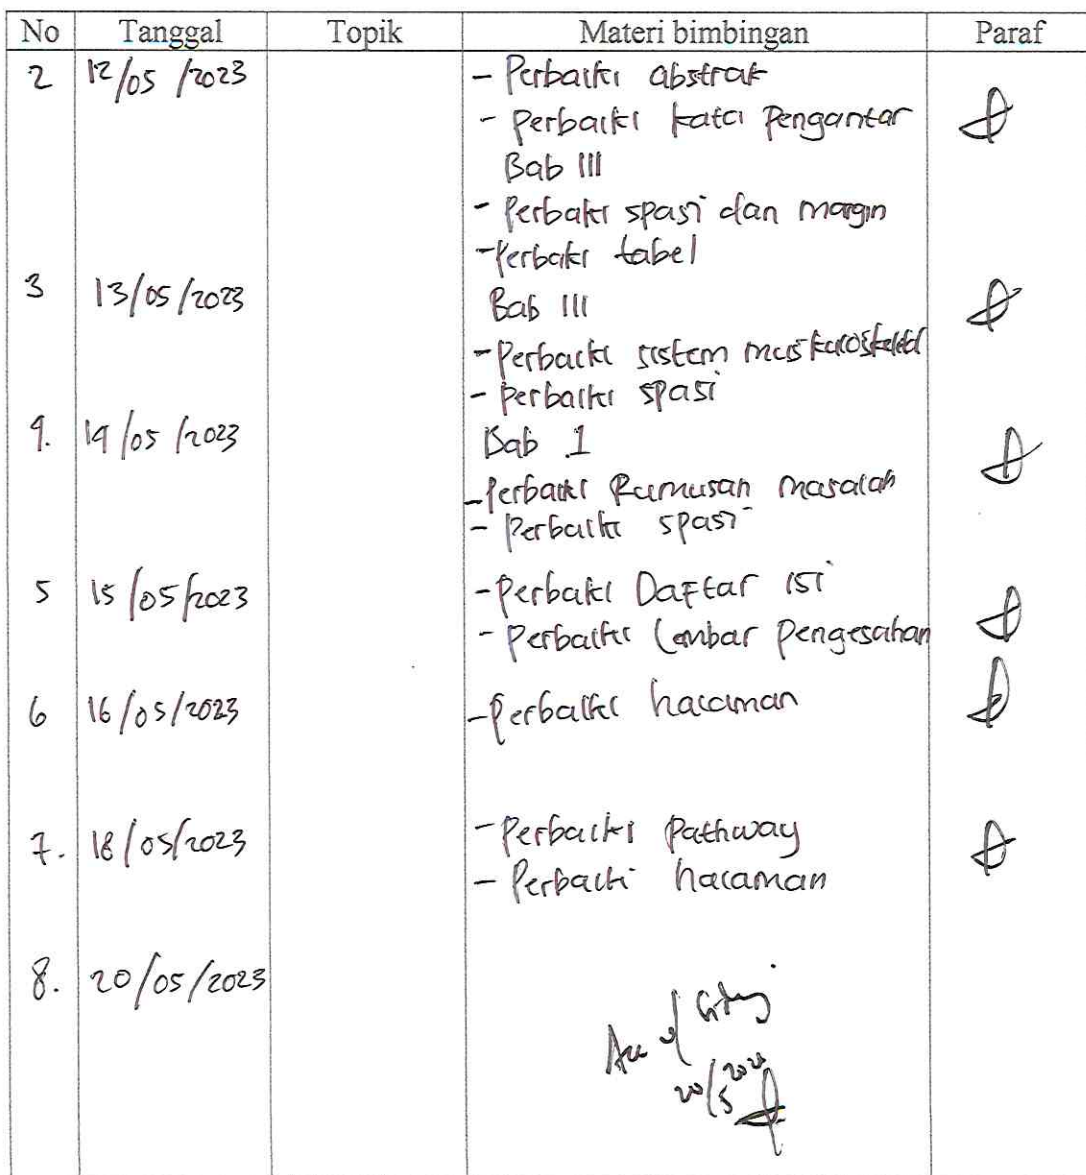 No Tanggal Topik Materi bimbingan Paraf
2 12/05/2023 - Perbaiki abstrak
- Perbaiki kata Pengantar
Bab III
- Perbaki spasi dan margin
- Perbaki tabel
3 13/05/2023 Bab III
- Perbaiki sistem muskuloskeletal
- Perbaiki spasi
4. 14/05/2023 Bab 1
- Perbaiki Rumusan masalah
- Perbaiki spasi
5 15/05/2023 - Perbaki Daftar isi
- Perbaiki Lembar pengesahan
6 16/05/2023 - Perbaiki halaman
7. 18/05/2023 - Perbaiki Pathway
- Perbaiki halaman
8. 20/05/2023
Acc
20/5